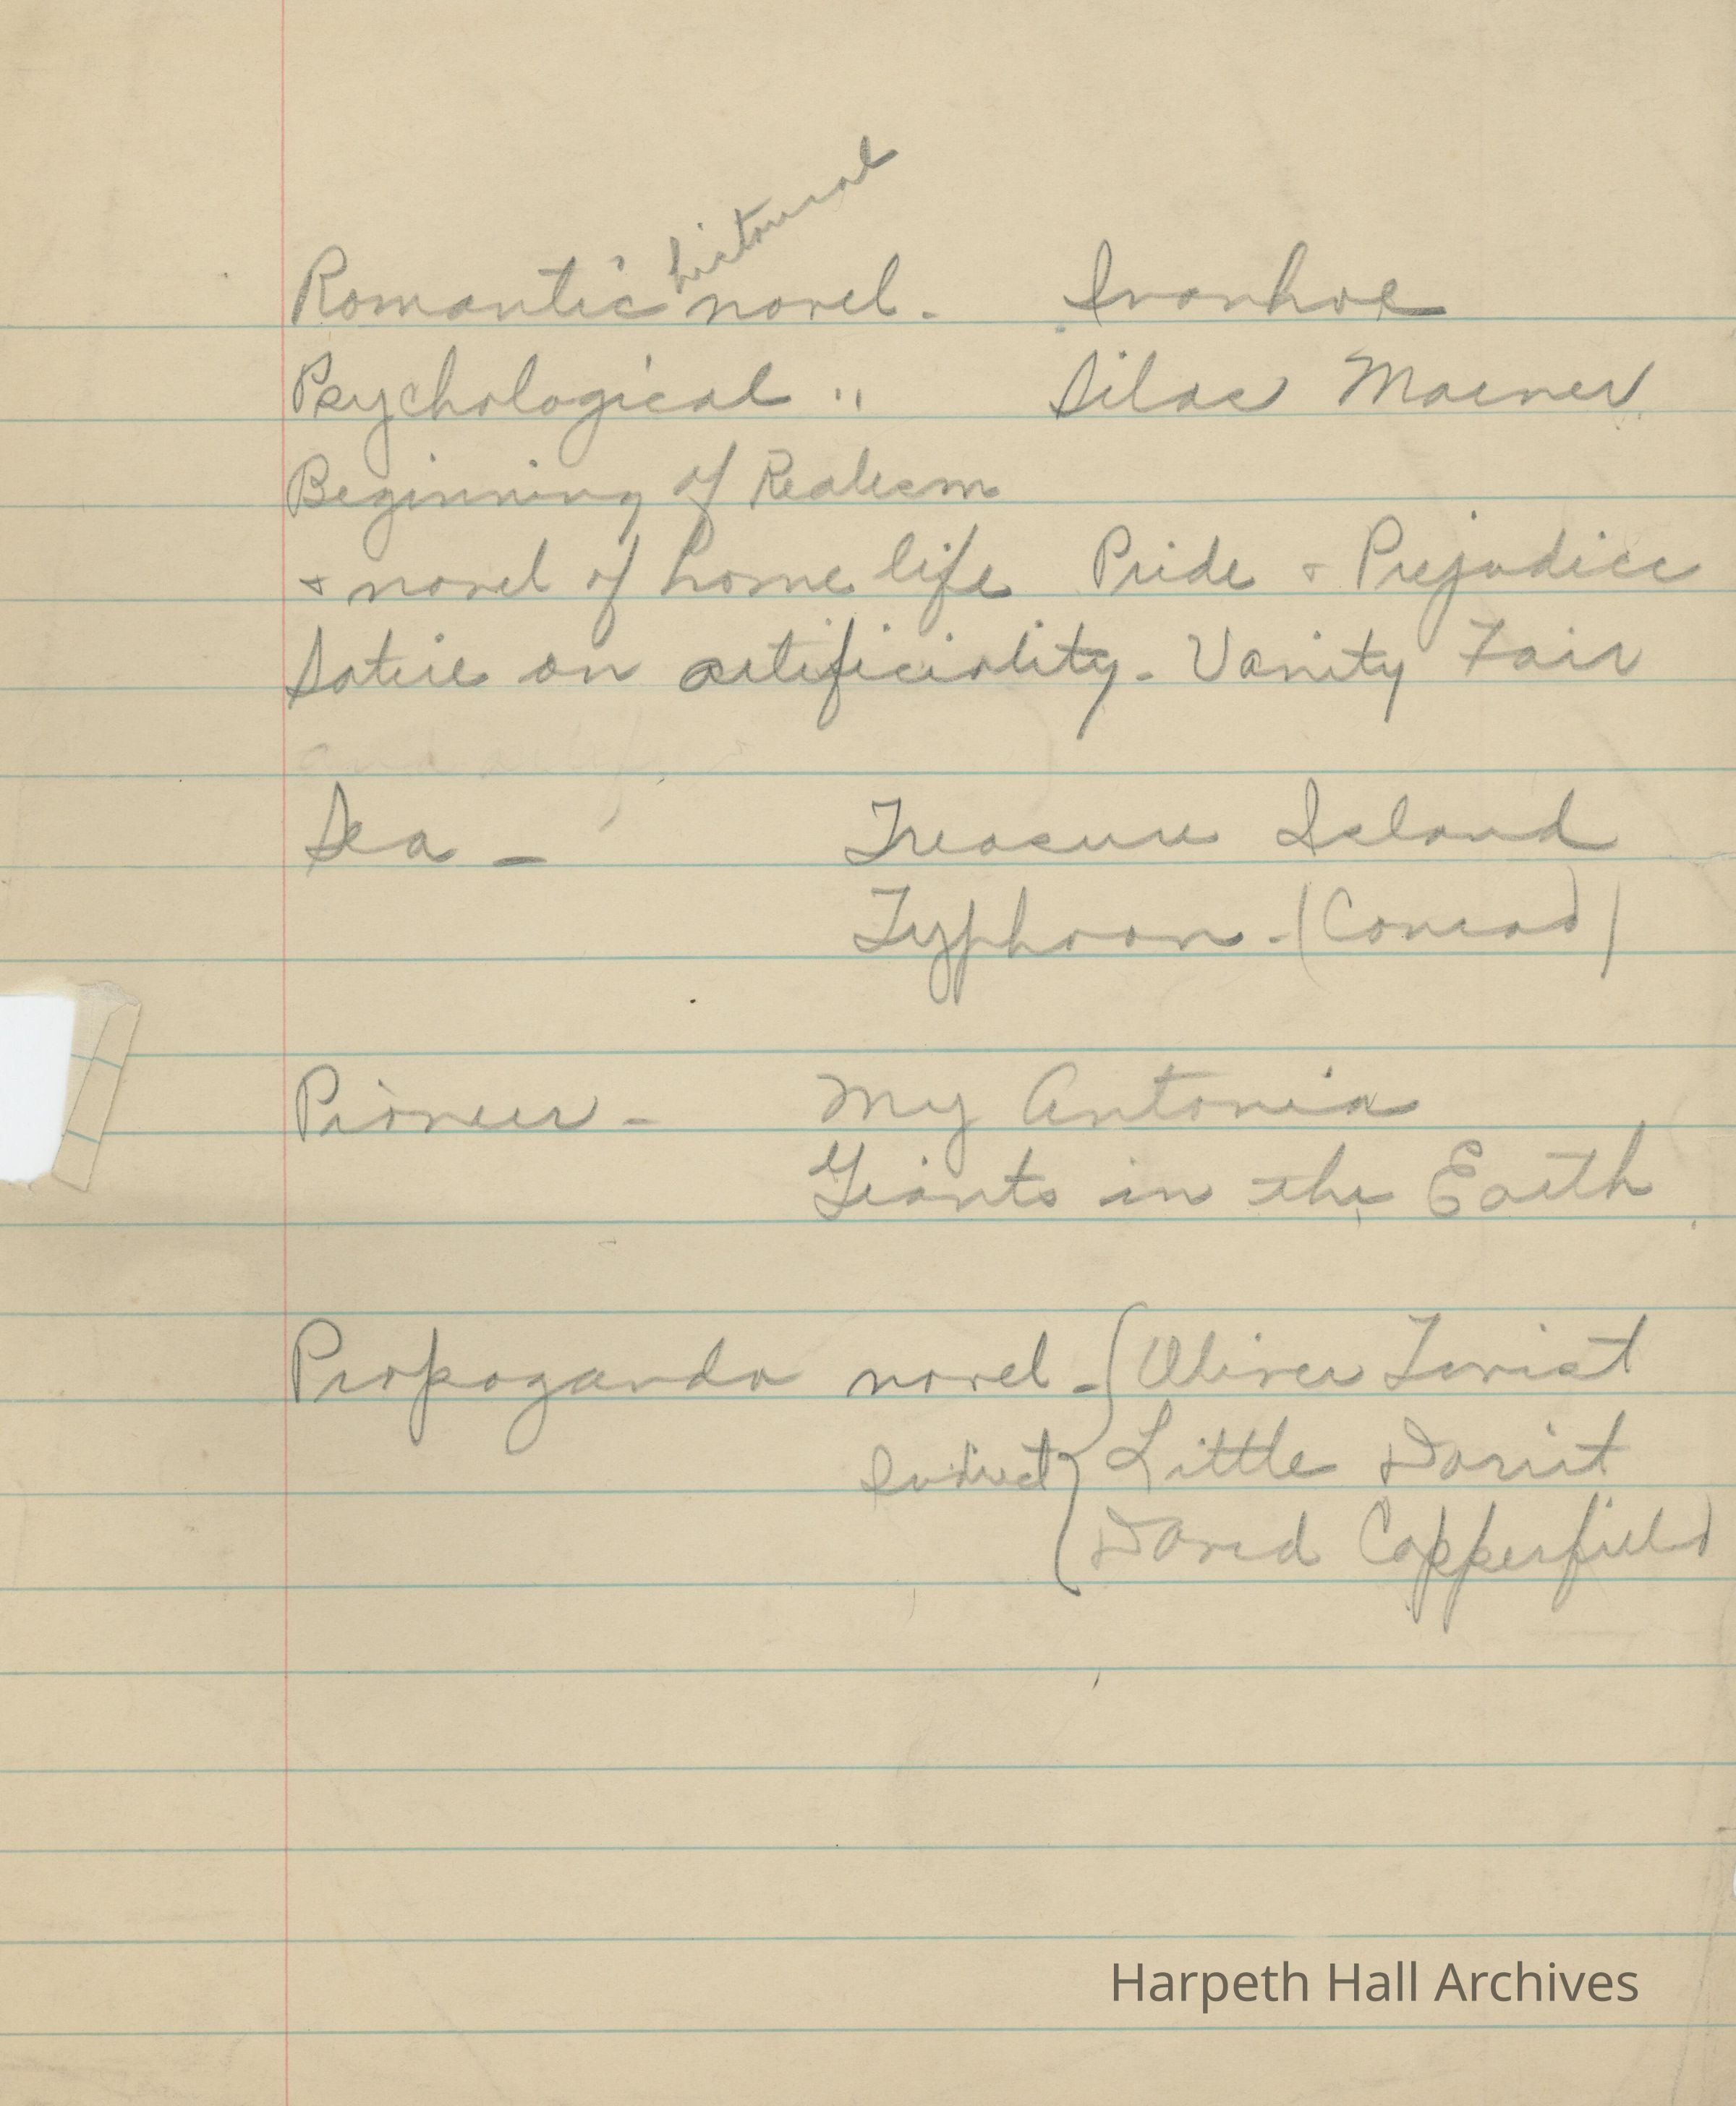 historical
Romantic novel. Ivanhoe
Psychological " Silas Marner
Beginning of Realism
& novel of home life Pride & Prejudice
Satire on artificiality - Vanity Fair
Sea - Treasure Island
Typhoon - (Conrad)
Pioneer - My Antonia
Giants in the Earth
Propoganda novel - Oliver Twist
Indirect Little Dorrit
David Copperfield
Harpeth Hall Archives